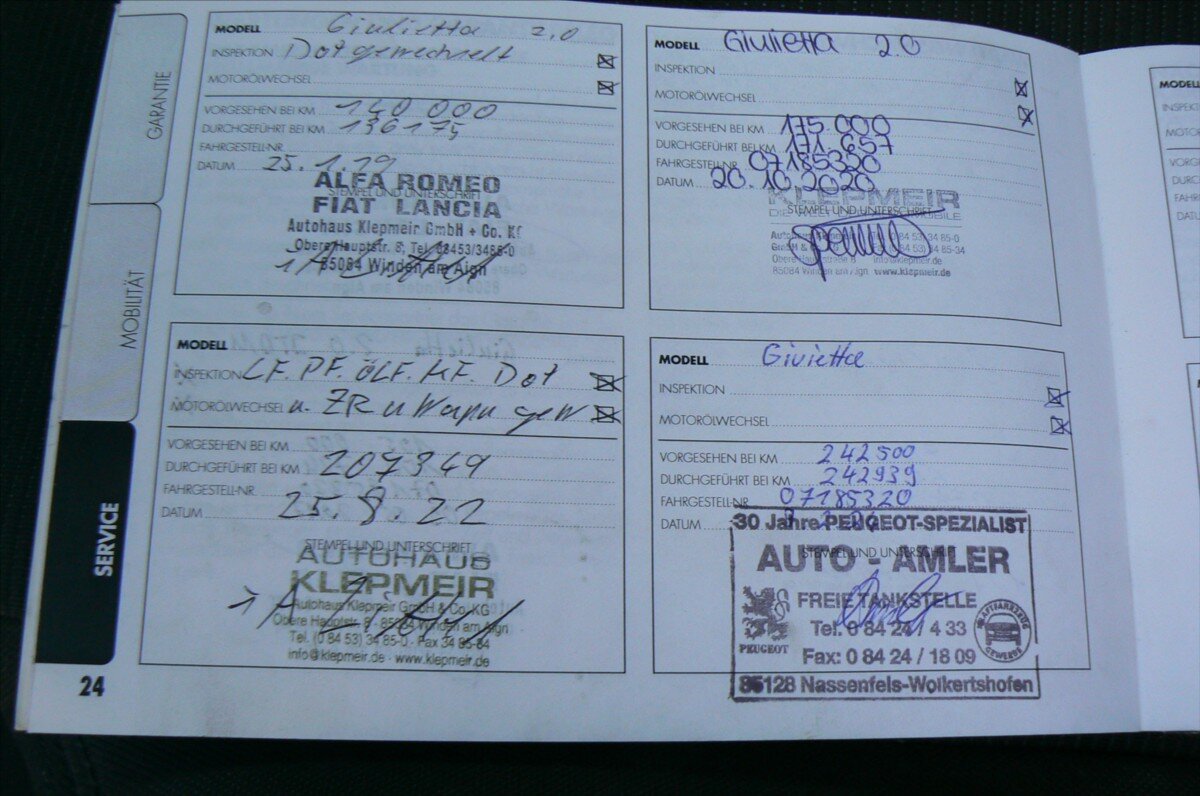 GARANTIE
MOBILITÄT
SERVICE
MODELL Giulietta 2.0
INSPEKTION Dot gewechselt
MOTORÖLWECHSEL
VORGESEHEN BEI KM 140 000
DURCHGEFÜHRT BEI KM 136175
FAHRGESTELL-NR.
DATUM 25.1.19
STEMPEL UND UNTERSCHRIFT
ALFA ROMEO
FIAT LANCIA
Autohaus Klepmeir GmbH + Co. KG
Obere Hauptstr. 8, Tel. 08453/3485-0
85084 Winden am Aign
MODELL Giulietta 2.0
INSPEKTION
MOTORÖLWECHSEL
VORGESEHEN BEI KM 175.000
DURCHGEFÜHRT BEI KM 171.657
FAHRGESTELL-NR. 07185320
DATUM 20.10.2020
KLEPMEIR
STEMPEL UND UNTERSCHRIFT
Obere Hauptstraße 8 info@klepmeir.de
85084 Winden am Aign www.klepmeir.de
MODELL
INSPEKTION LF. PF. ÖLF. KF. Dot
MOTORÖLWECHSEL u. ZR u Wapu gew
VORGESEHEN BEI KM
DURCHGEFÜHRT BEI KM 207349
FAHRGESTELL-NR.
DATUM 25.8.22
STEMPEL UND UNTERSCHRIFT
AUTOHAUS
KLEPMEIR
Autohaus Klepmeir GmbH & Co. KG
Obere Hauptstr. 8 · 85084 Winden am Aign
Tel. (0 84 53) 34 85-0 · Fax 34 85-84
info@klepmeir.de · www.klepmeir.de
MODELL Giulietta
INSPEKTION
MOTORÖLWECHSEL
VORGESEHEN BEI KM 242500
DURCHGEFÜHRT BEI KM 242939
FAHRGESTELL-NR. 07185320
DATUM
30 Jahre PEUGEOT-SPEZIALIST
STEMPEL UND UNTERSCHRIFT
AUTO - AMLER
FREIE TANKSTELLE
Tel. 0 84 24 / 4 33
PEUGEOT
KRAFTFAHRZEUG GEWERBE
Fax: 0 84 24 / 18 09
85128 Nassenfels-Wolkertshofen
24
MODELL